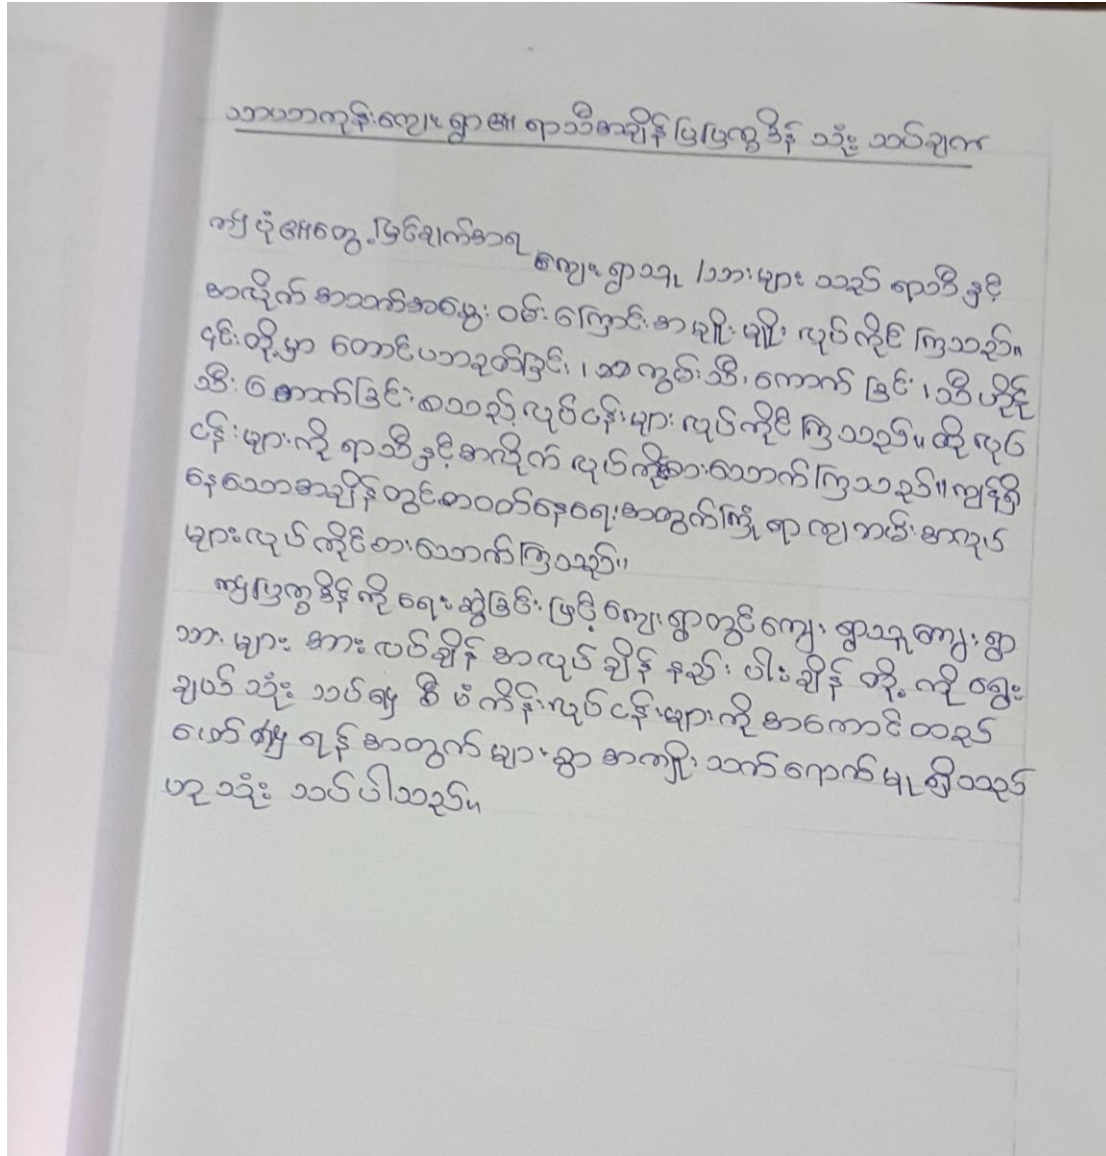 သာပဘာကုန်းကျေးရွာ၏ ရာသီအချိန်ပြပြက္ခဒိန် သုံးသပ်ချက်
ဤပုံ၏တွေ့မြင်ချက်အရ
ကျေးရွာသူ/သားများသည် ရာသီနှင့်
အလိုက် အသက်အမွေး ဝမ်းကြောင်းအမျိုးမျိုး လုပ်ကိုင်ကြသည်။
၎င်းတို့မှာ တောင်ယာခုတ်ခြင်း၊ သကွမ်းသီးကောက်ခြင်း၊ သီဟိုဠ်
သီးကောက်ခြင်းစသည့်လုပ်ငန်းများ လုပ်ကိုင်ကြသည်။ ထိုလုပ်
ငန်းများကို ရာသီနှင့်အလိုက် လုပ်ကိုင်စားသောက်ကြသည်။ ကျန်ရှိ
နေသောအချိန်တွင်စားဝတ်နေရေးအတွက်ကြုံရာကျဘမ်းအလုပ်
များလုပ်ကိုင်စားသောက်ကြသည်။
ဤပြက္ခဒိန်ကို ရေးဆွဲခြင်းဖြင့် ကျေးရွာတွင်ကျေးရွာသူကျေးရွာ
သားများ အားလပ်ချိန် အလုပ်ချိန် နည်းပါးချိန် တို့ကို ရွေး
ချယ်သုံးသပ်၍ စီမံကိန်းလုပ်ငန်းများကို အကောင်ထည်
ဖော်၍ ရန်အတွက် များစွာ အကျိုးသက်ရောက်မှုရှိသည်
ဟု သုံးသပ်ပါသည်။